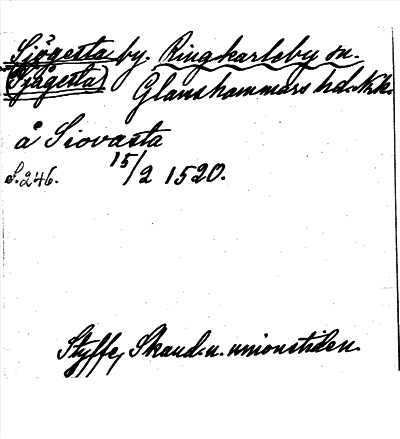 Sjögesta by. Ringkarleby sn.
(Sjågesta) Glanshammars hd. Nrk.
å Siovasta
S. 246. 15/2 1520.
Styffe, Skand. u. unionstiden.